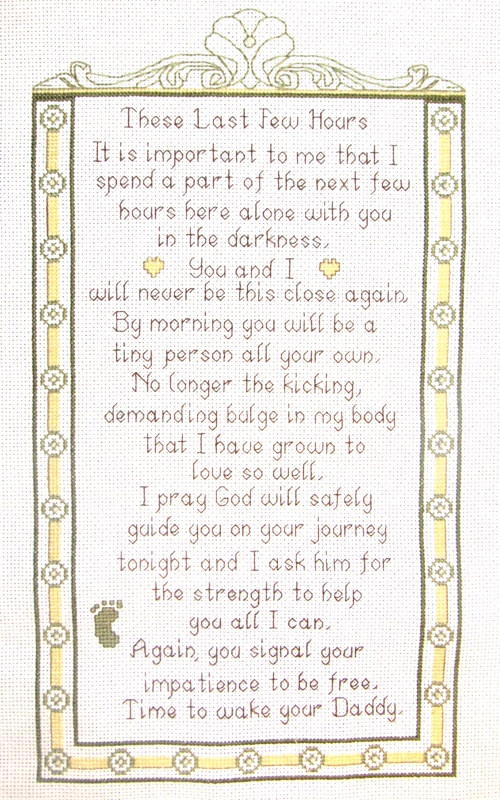 These Last Few Hours
It is important to me that I
spend a part of the next few
hours here alone with you
in the darkness.
You and I
will never be this close again
By morning you will be a
tiny person all your own.
No longer the kicking,
demanding bulge in my body
that I have grown to
love so well.
I pray God will safely
guide you on your journey
tonight and I ask him for
the strength to help
you all I can.
Again, you signal your
impatience to be free.
Time to wake your Daddy.